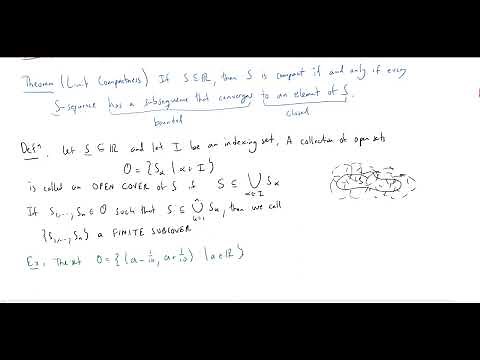 Theorem (Limit Compactness) If S ⊆ ℝ, then S is compact if and only if every
S-sequence has a subsequence that converges to an element of S.
bounded closed
Def<sup>n</sup>. Let S ⊆ ℝ and let I be an indexing set. A collection of open sets
O = {S_α | α ∈ I}
is called an OPEN COVER of S if S ⊆ ⋃_{α∈I} S_α
If S_1, ..., S_n ∈ O such that S ⊆ ⋃_{k=1}^n S_k, then we call
{S_1, ..., S_n} a FINITE SUBCOVER
Ex: The set O = {(a - 1/10, a + 1/10) | a ∈ ℝ}